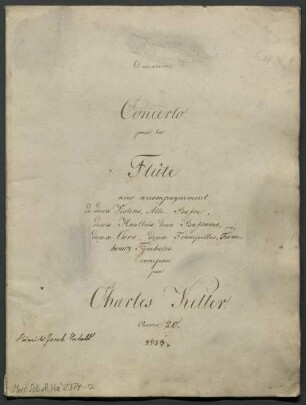 Concerto
pour la
Flûte
avec accompagnement
de deux Violons, Alto, Basse,
deux Hautbois, deux Bassons,
deux Cors, deux Trompettes,
Tymbales
composé
par
Charles Keller
Oeuvre 20.
Heinrich Jacob
Mus. Schott. Ha 2374-2